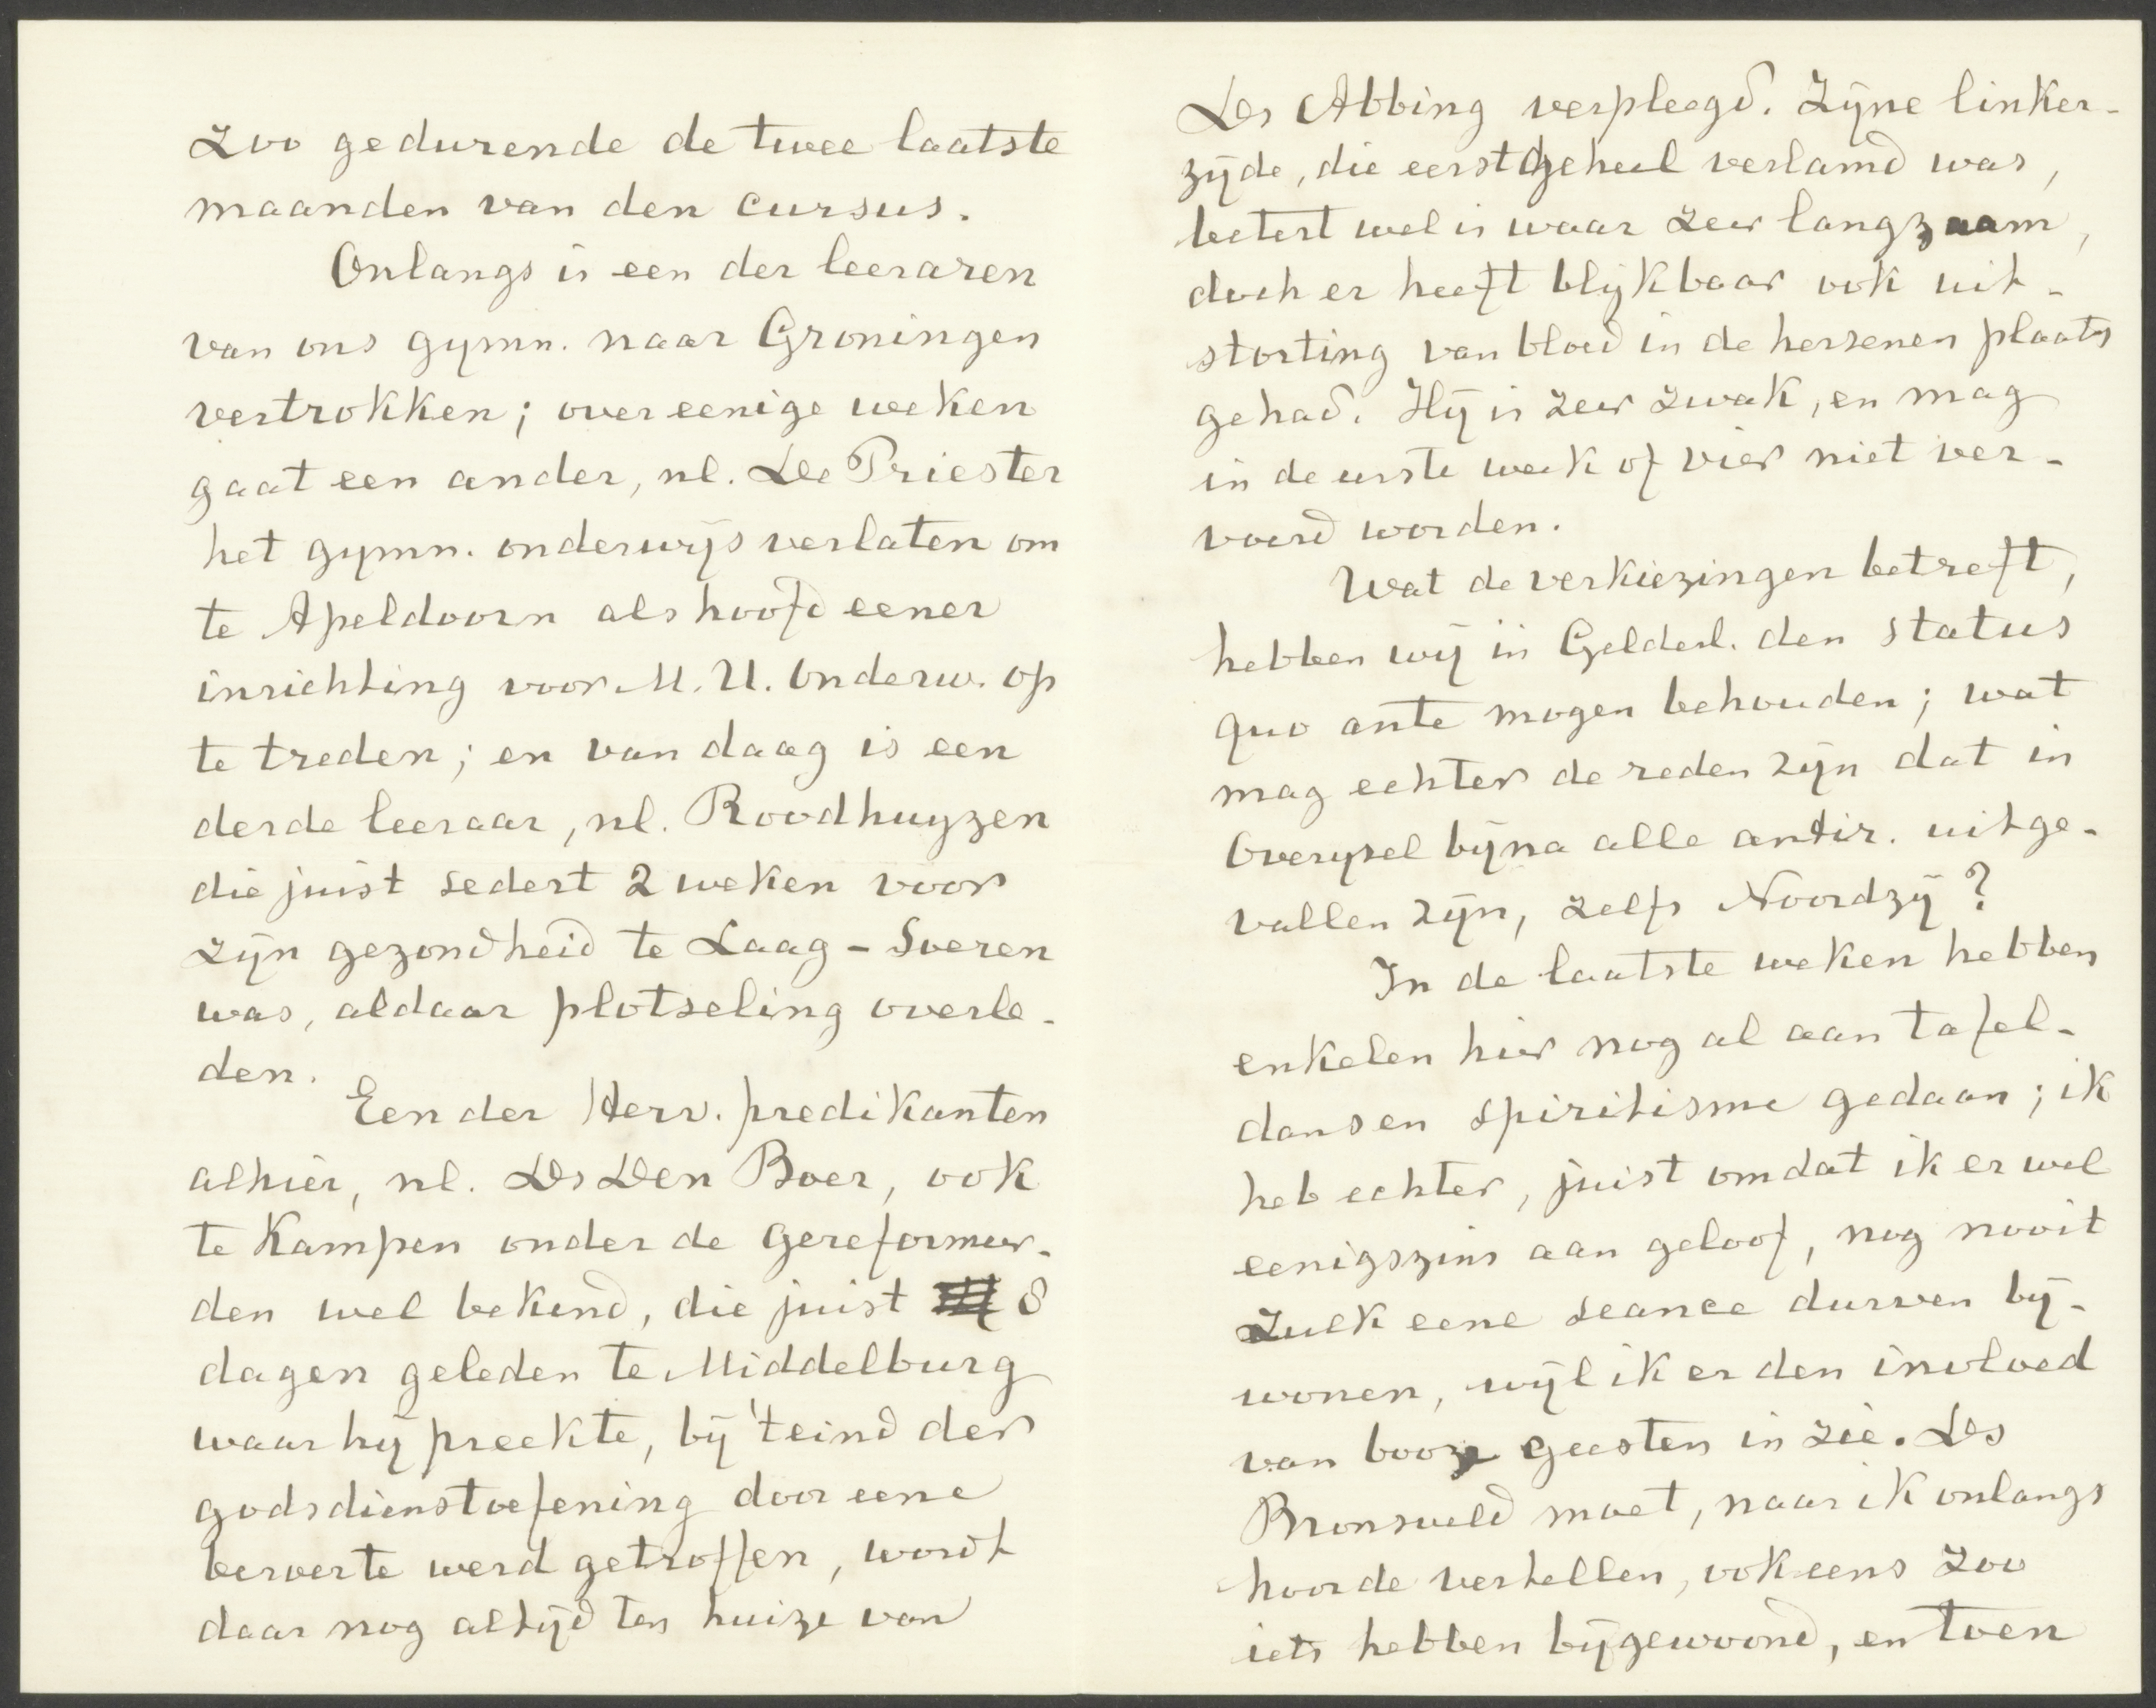 zoo gedurende de twee laatste
maanden van den cursus.
Onlangs is een der leeraren
van ons gymn. naar Groningen
vertrokken; over eenige weken
gaat een ander, nl. De Priester
het gymn. onderwijs verlaten om
te Apeldoorn als hoofd eener
inrichting voor M. U. Onderw. op
te treden; en van daag is een
derde leeraar, nl. Roodhuyzen
die juist sedert 2 weken voor
zijn gezondheid te Laag-Soeren
was, aldaar plotseling overle-
den.
Een der Herv. predikanten
alhier, nl. Ds Den Boer, ook
te Kampen onder de gereformeer-
den wel bekend, die juist 8
dagen geleden te Middelburg
waar hij preekte, bij 't eind der
godsdienstoefening door eene
beroerte werd getroffen, wordt
daar nog altijd ten huize van
Ds Abbing verpleegd. Zijne linker-
zijde, die eerst geheel verlamd was,
betert wel is waar zeer langzaam,
doch er heeft blijkbaar ook uit-
storting van bloed in de hersenen plaats
gehad. Hij is zeer zwak, en mag
in de eerste week of vier niet ver-
voerd worden.
Wat de verkiezingen betreft,
hebben wij in Gelderl. den status
quo ante mogen behouden; wat
mag echter de reden zijn dat in
Overysel bijna alle antir. uitge-
vallen zijn, zelfs Noordzij?
In de laatste weken hebben
enkelen hier nog al aan tafel-
dans en spiritisme gedaan; ik
heb echter, juist omdat ik er wel
eenigszins aan geloof, nog nooit
zulk eene seance durven bij-
wonen, wijl ik er den invloed
van booze geesten in zie. Ds
Bronsveld moet, naar ik onlangs
hoorde vertellen, ook eens zoo
iets hebben bijgewoond, en toen